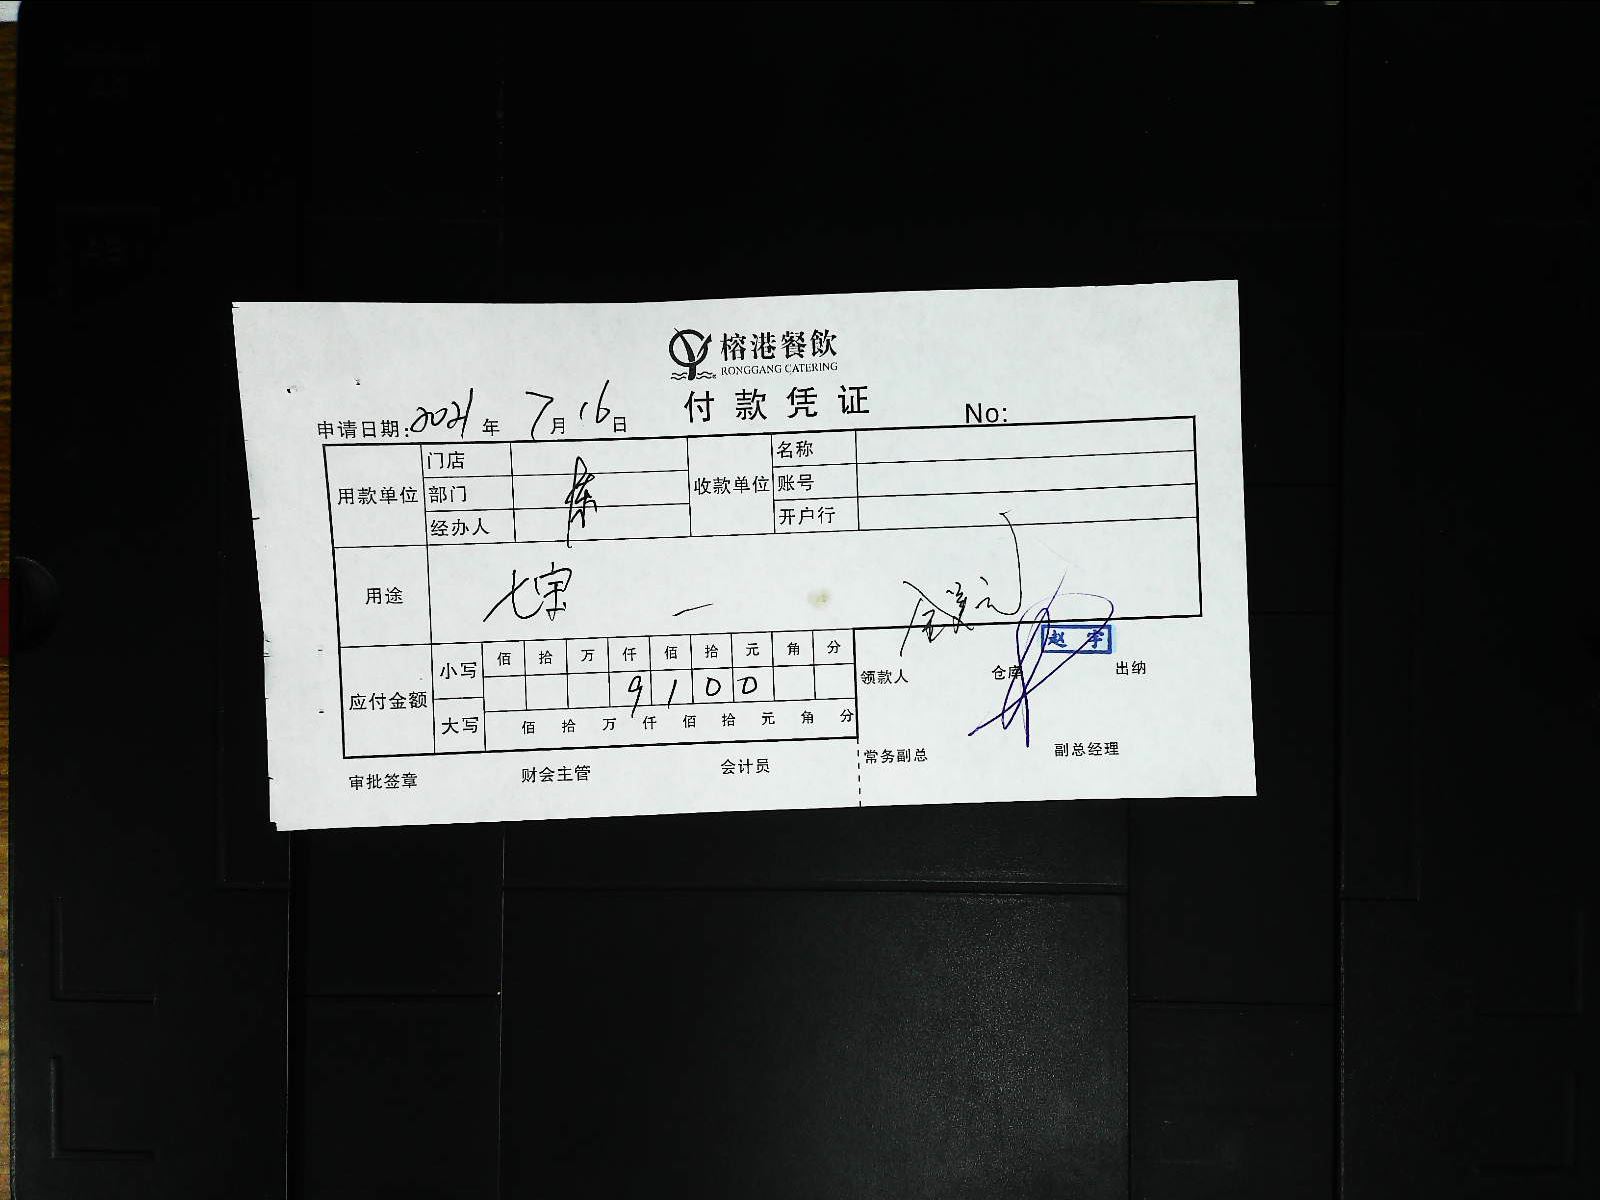 榕港餐飲
RONGGANG CATERING
付款凭证
申请日期:2021年7月16日
No:
用款单位
门店
部门
经办人
收款单位
名称
账号
开户行
用途
七宝
应付金额
小写
佰 拾 万 仟 佰 拾 元 角 分
9 1 0 0
大写
佰 拾 万 仟 佰 拾 元 角 分
领款人
仓库
赵宇
出纳
常务副总
副总经理
审批签章
财会主管
会计员